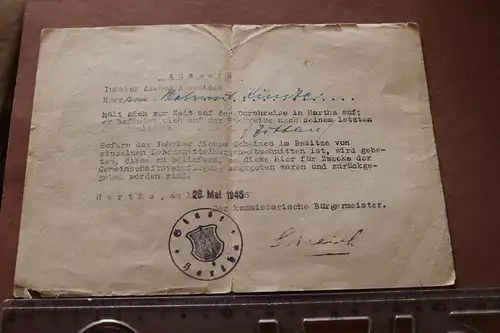 Ausweis
Inhaber dieses Ausweises
Herr/
hält sich zur Zeit auf der Durchreise in Hartha auf;
er befindet sich auf der Heimreise nach seinem letzten
Zittau
Sofern der Inhaber dieses Scheines im Besitze von
einzelnen Lebensmittelkarten-Abschnitten ist, wird gebe-
ten, diese zu beliefern, da diese hier für Zwecke der
Gemeinschaftsverpflegung abgegeben waren und zurückge-
geben worden sind.
Hartha, am 28. Mai 1945
Der kommissarische Bürgermeister.
Stadt
Hartha